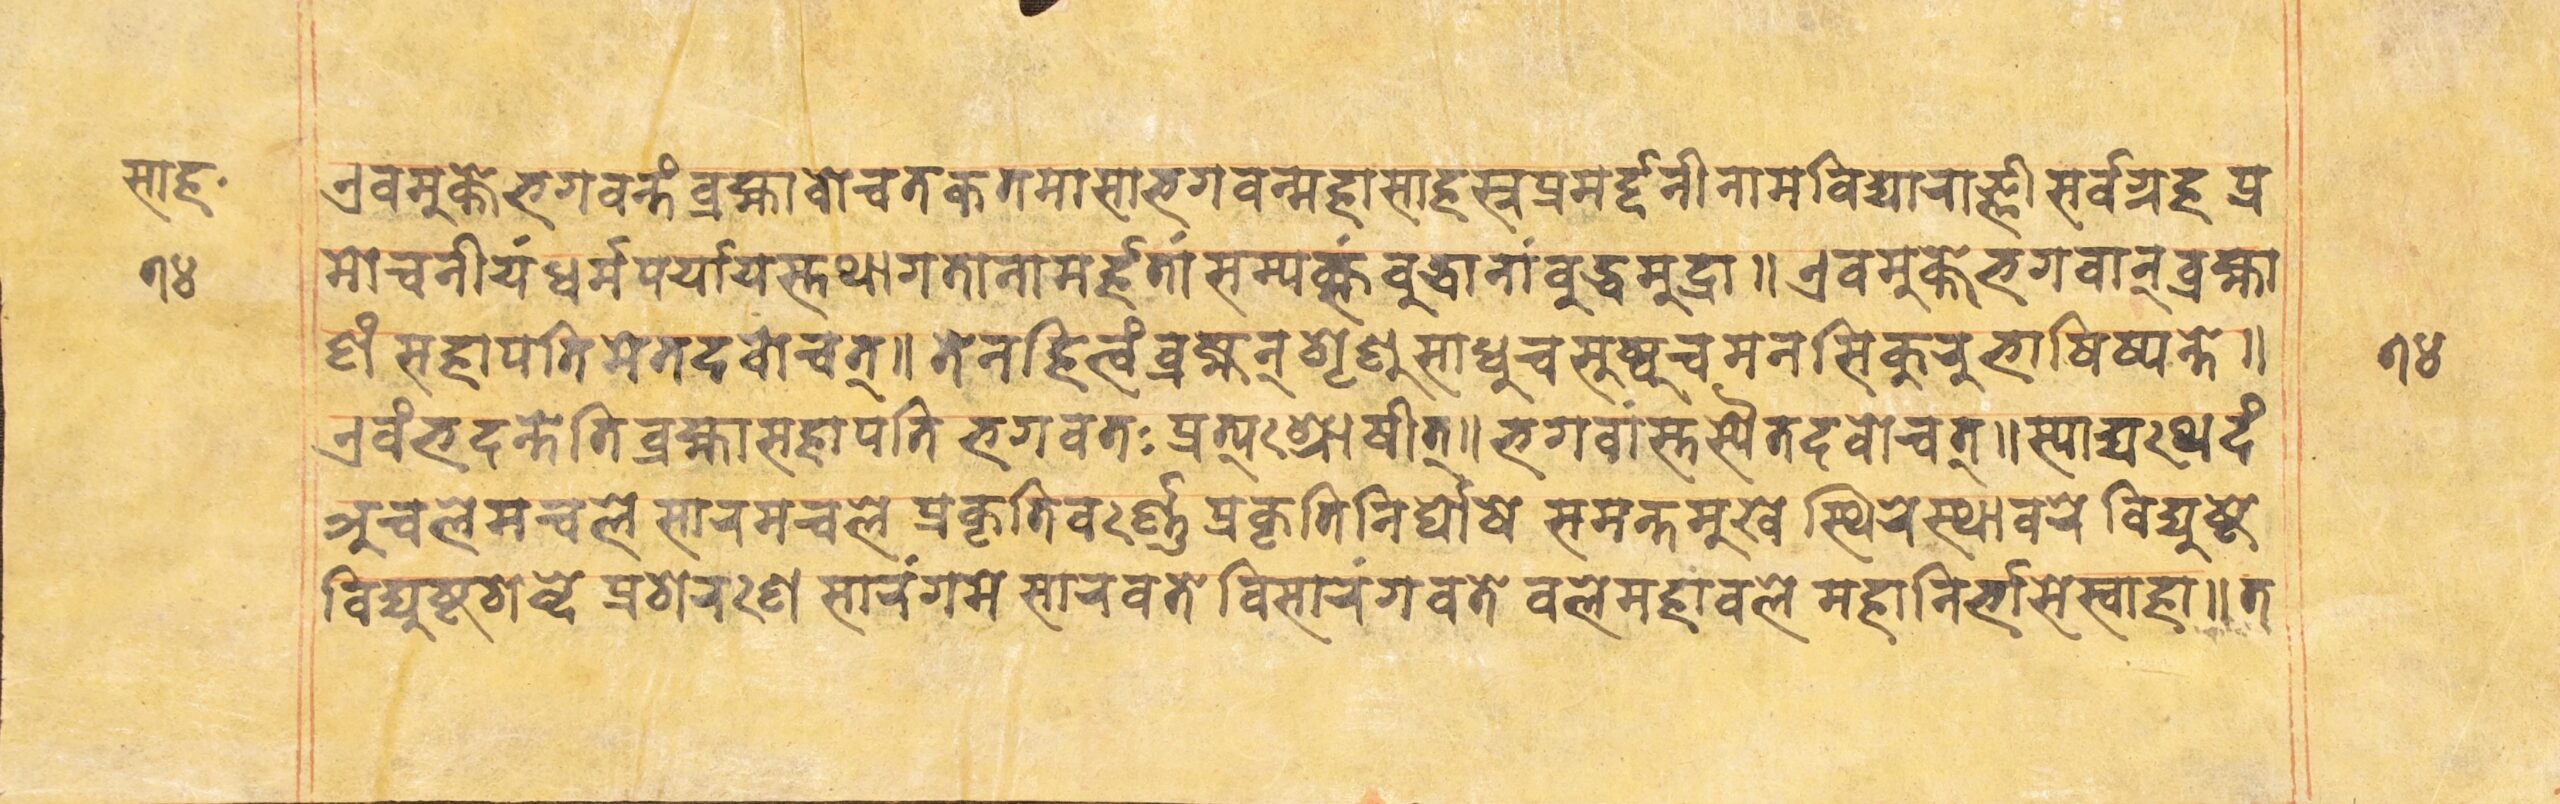 साह॰
१४
एवमुक्ते भगवन्तं ब्रह्मावोचत कतमा सा भगवन्महासाहस्रप्रमर्द्दनी नाम विद्याराज्ञी सर्वग्रह प्र
मोचनीयं धर्मपर्यायस्तथागतानामर्हतां सम्यक्संबुद्धानां बुद्धमुद्रा ॥ एवमुक्ते भगवान् ब्रह्मा
णं सहापतिमेतदवोचत् ॥ तेन हि त्वं ब्रह्मन् शृणु साधु च सुष्ठु च मनसि कुरु भाषिष्यन्ते ॥
१४
एवं भदन्तेति ब्रह्मा सहापति भगवतः प्रत्यःश्रोषीत् ॥ भगवांस्तस्यैतदवोचत् ॥ स्याद्यःथदं
अचले मचले सारमचले प्रकृतिवःर्ण्णे प्रकृतिनिर्घोषे समन्तमुखे स्थिरे स्थावरे विद्युष्टे
विद्युष्टशब्दे प्रशरःण सारंगमे सारवते विसारंगवते वले महावले महानिर्भासे स्वाहा ॥ त